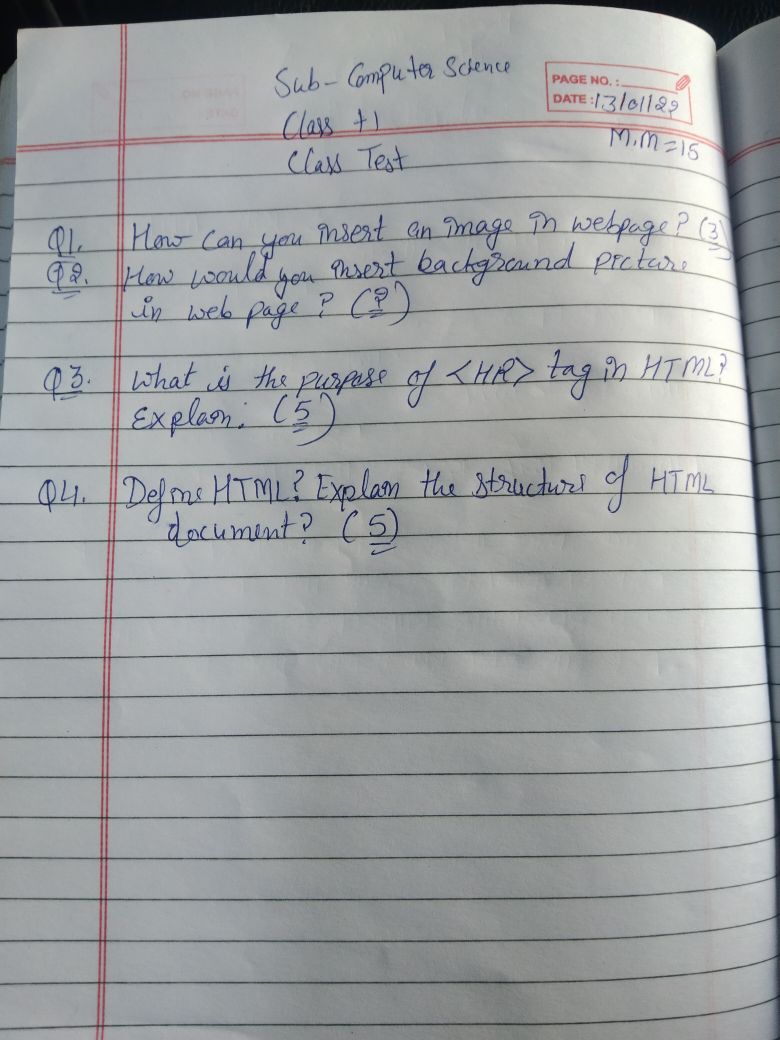 Sub- Computer Science
PAGE NO.:
DATE: 13/01/22
Class +1
M.M=15
Class Test
Q1. How can you insert an image in webpage? (3)
Q2. How would you insert background picture
in web page? (2)
Q3. What is the purpose of <HR> tag in HTML?
Explain. (5)
Q4. Define HTML? Explain the structure of HTML
document? (5)